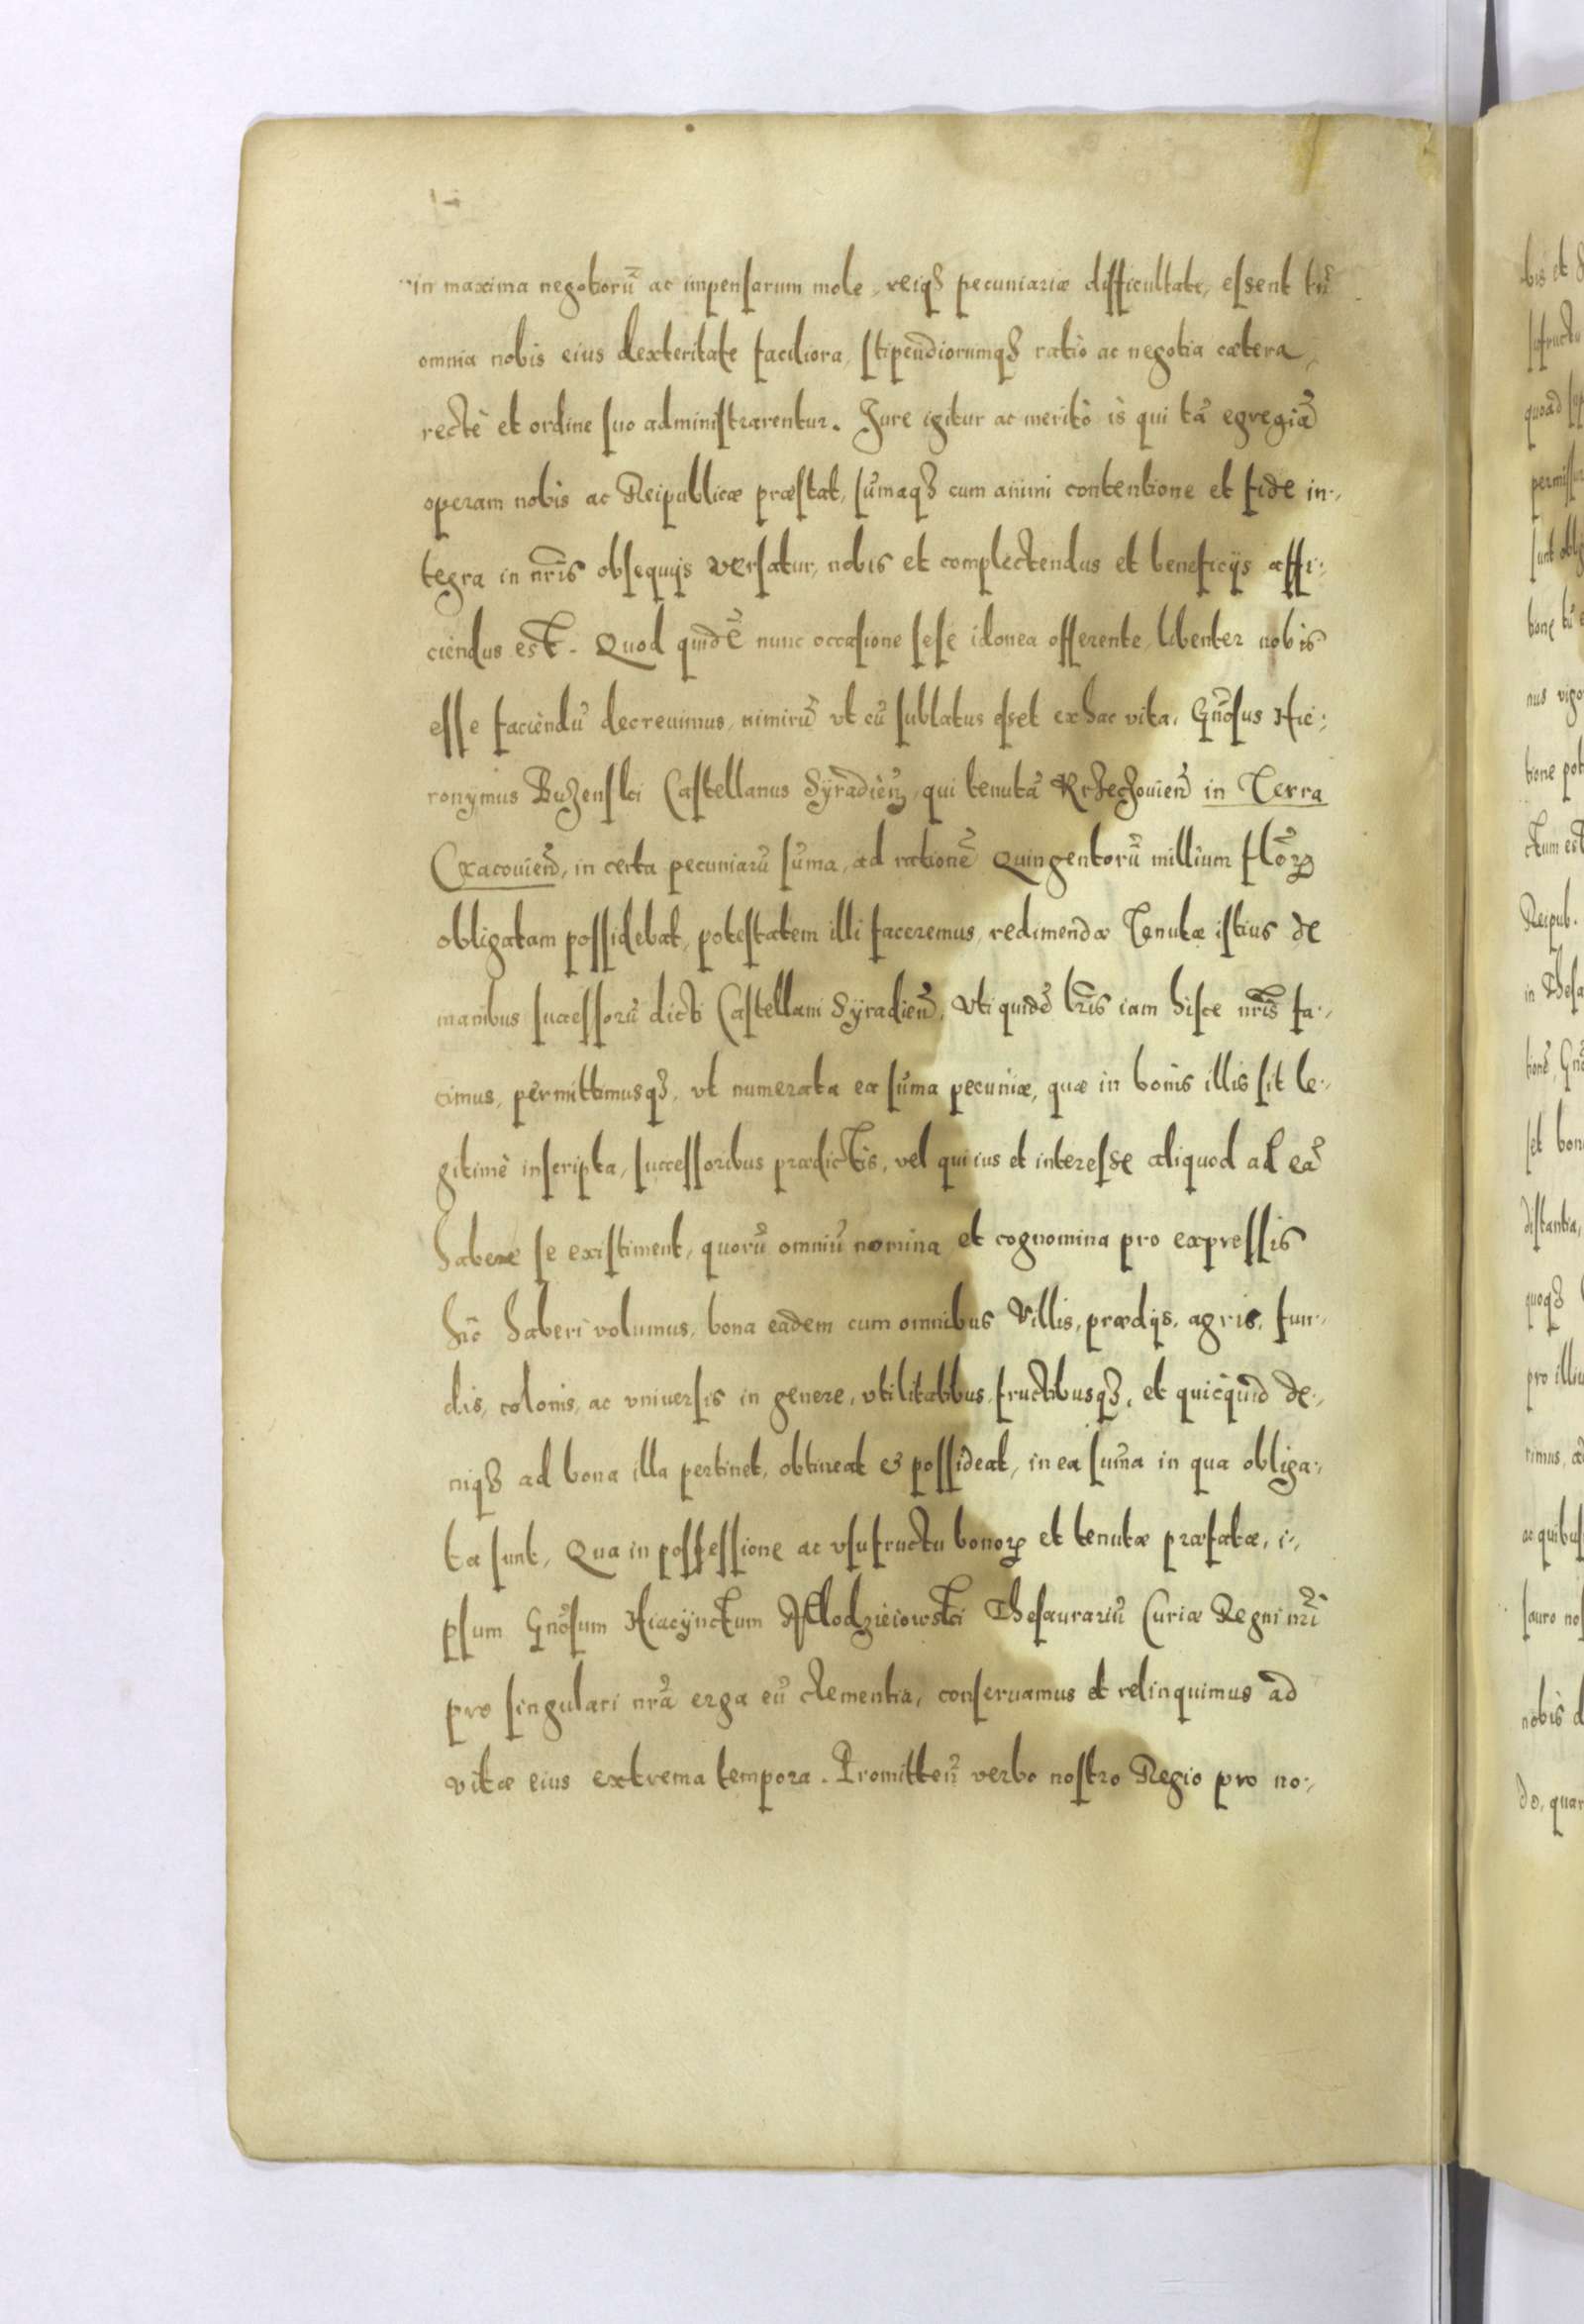 in maxima negotiorũ ac impensarum mole, reiq₃ pecuniariæ difficultate, essent tñ
omnia nobis eius dexteritate faciliora, stipendiorumq₃ ratio ac negotia cætera,
rectè et ordine suo administrarentur. Jure igitur ac meritò is qui tã egregiã
operam nobis ac Reipublicæ præstat, sũmaq₃ cum animi contentione et fide in-,
tegra in nr̃is obsequijs versatur, nobis et complectendus et beneficijs affi-,
ciendus est. Quod quidẽ nunc occasione sese idonea offerente, libenter nobis
esse faciendũ decreuimus, nimirũ vt cũ sublatus esset ex hac vita, Gñosus Hie-,
ronymus Buzenski Castellanus Syradieñ, qui tenutã in Terra
Cracouieñ, in certa pecuniarũ sũma, ad rationẽ Quingentorũ millium flõrꝫ
obligatam possidebat, potestatem illi faceremus, redimendæ Tenutæ istius de
manibus successorũ dicti Castellani Syradieñ, Vti quidẽ lr̃is iam hisce nr̃is fa-,
cimus, permittimusq₃, vt numerata ea sũma pecuniæ, quæ in bonis illis sit le-,
gitimè inscripta, successoribus prædictis, vel qui ius et interesse aliquod ad eã
habere se existiment, quorũ omniũ nomina et cognomina pro expressis
hîc haberi volumus, bona eadem cum omnibus Villis, prædijs, agris, fun-,
dis, colonis, ac vniuersis in genere, vtilitatibus, fructibusq₃, et quicquid de-,
niq₃ ad bona illa pertinet, obtineat & possideat, in ea sum̃a in qua obliga-,
ta sunt, Qua in possessione ac vsufructu bonorꝫ et tenutæ præfatæ, i-,
psum Gñosum Hiacynctum Mlodzieiowski Thesaurariũ Curiæ Regni nr̃i
pro singulari nr̃a erga eũ clementia, conseruamus et relinquimus ad
vitæ eius extrema tempora. Promitteñ verbo nostro Regio pro no-,